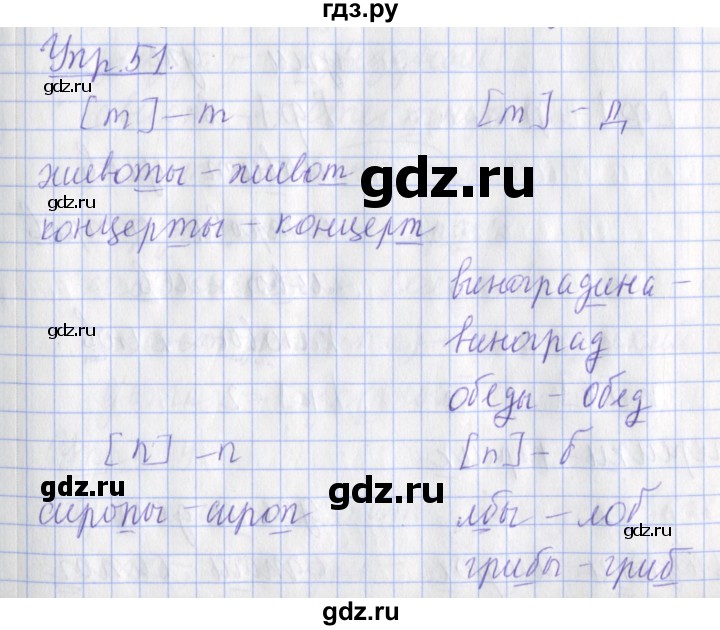 гдз.ру
Упр. 51.
[т] – т [т] – д
животы – живот
gdz.ru
концерты – концерт
gdz.ru
виноградина –
gdz.ru
виноград
обеды – обед
[п] – п [п] – б
gdz.ru
gdz.ru
сиропы – сироп лбы – лоб
gdz.ru
грибы – гриб
gdz.ru